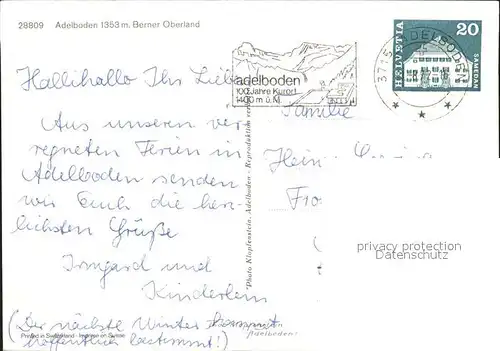 28809 Adelboden 1353 m. Berner Oberland
HELVETIA
20
SAMEDAN
3715 ADELBODEN
adelboden
100 Jahre Kurort
1400 m ü. M.
Hallihallo Ihr Lieben
Aus unseren ver
regneten Ferien in
Adelboden senden
wir Euch die herz
lichsten Grüße
Irmgard und
Kinderlein
(Der nächste Winter kommt
hoffentlich bestimmt!)
Familie
Hein
Fro
privacy protection
Datenschutz
Photo Klopfenstein, Adelboden - Reproduktion
Printed in Switzerland - Imprimé en Suisse
Adelboden!